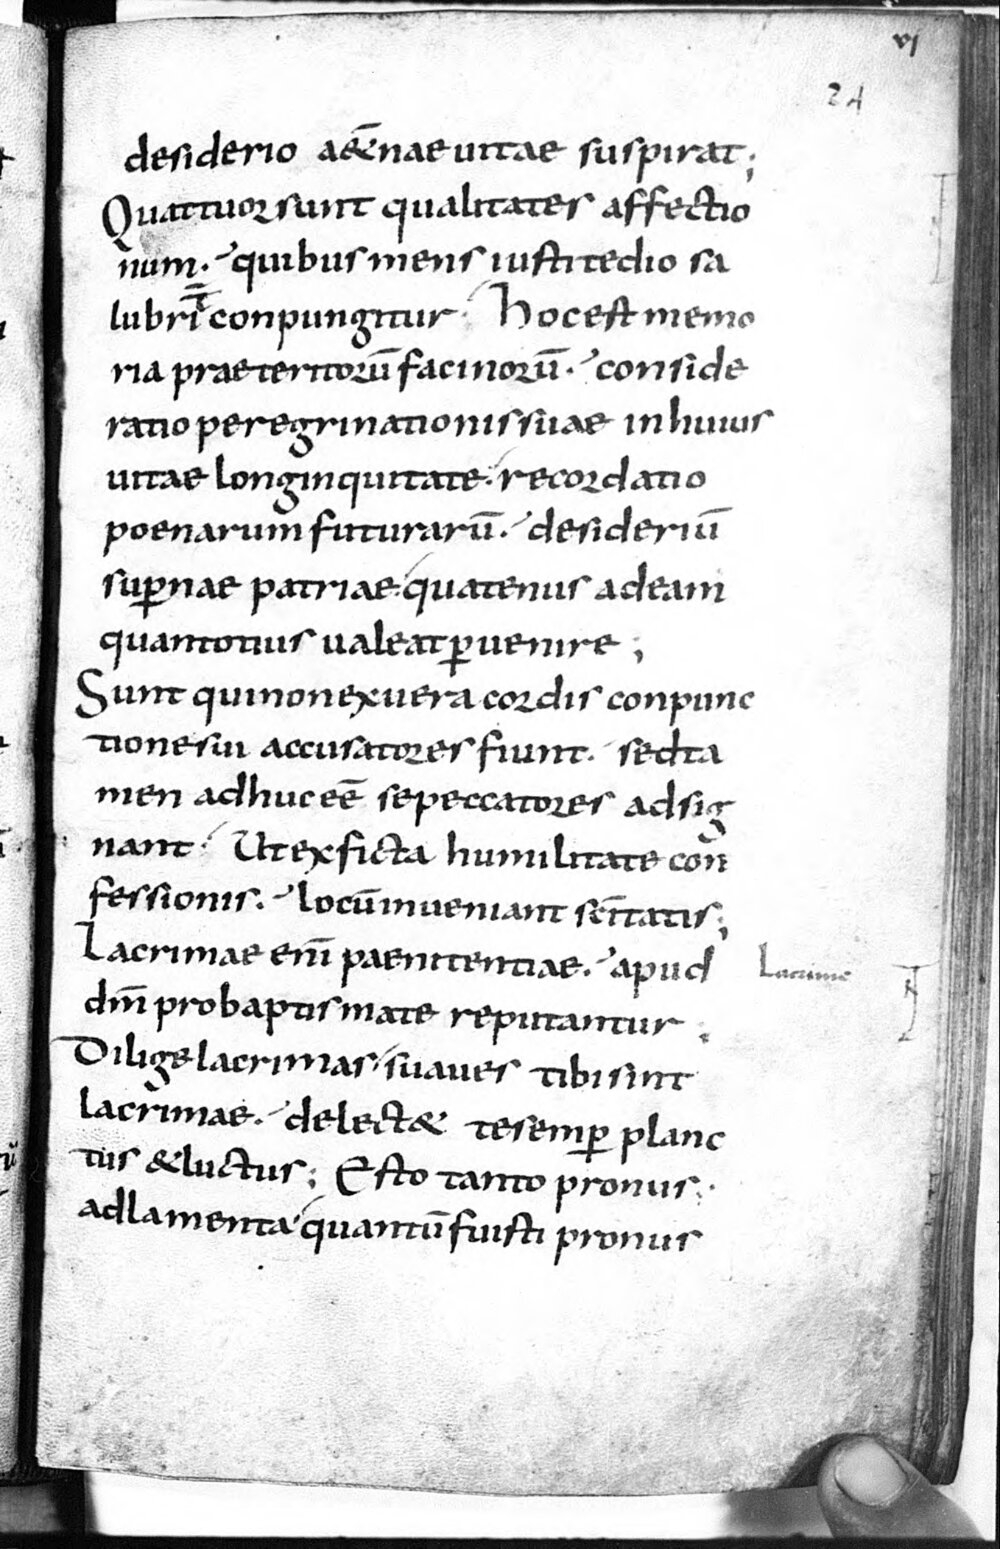 vi
24
desiderio aet̄nae uitae suspirat;
Quattuor sunt qualitates affectio
num. quibus mens iusti tedio sa
lubri conpungitur. Hoc est memo
ria praeteritorū facinorū. conside
ratio peregrinationis suae in huius
uitae longinquitate. recordatio
poenarum futurarū. desideriū
suꝑnae patriae. quatenus ad eam
quantotius ualeat ꝑuenire;
Sunt qui non ex uera cordis conpunc
tione sui accusatores fiunt. sed ta
men ad huc eē se peccatores adsig
nant. Ut ex ficta humilitate con
fessionis. locū inueniant scītatis;
Lacrimae enī paenitentiae. apud
Lacrime
dm̄ pro baptismate reputantur;
Dilige lacrimas. suaues tibi sint
lacrimae. delect& te semꝑ planc
tus & luctus; Esto tanto pronus
ad lamenta. quantū fuisti pronus